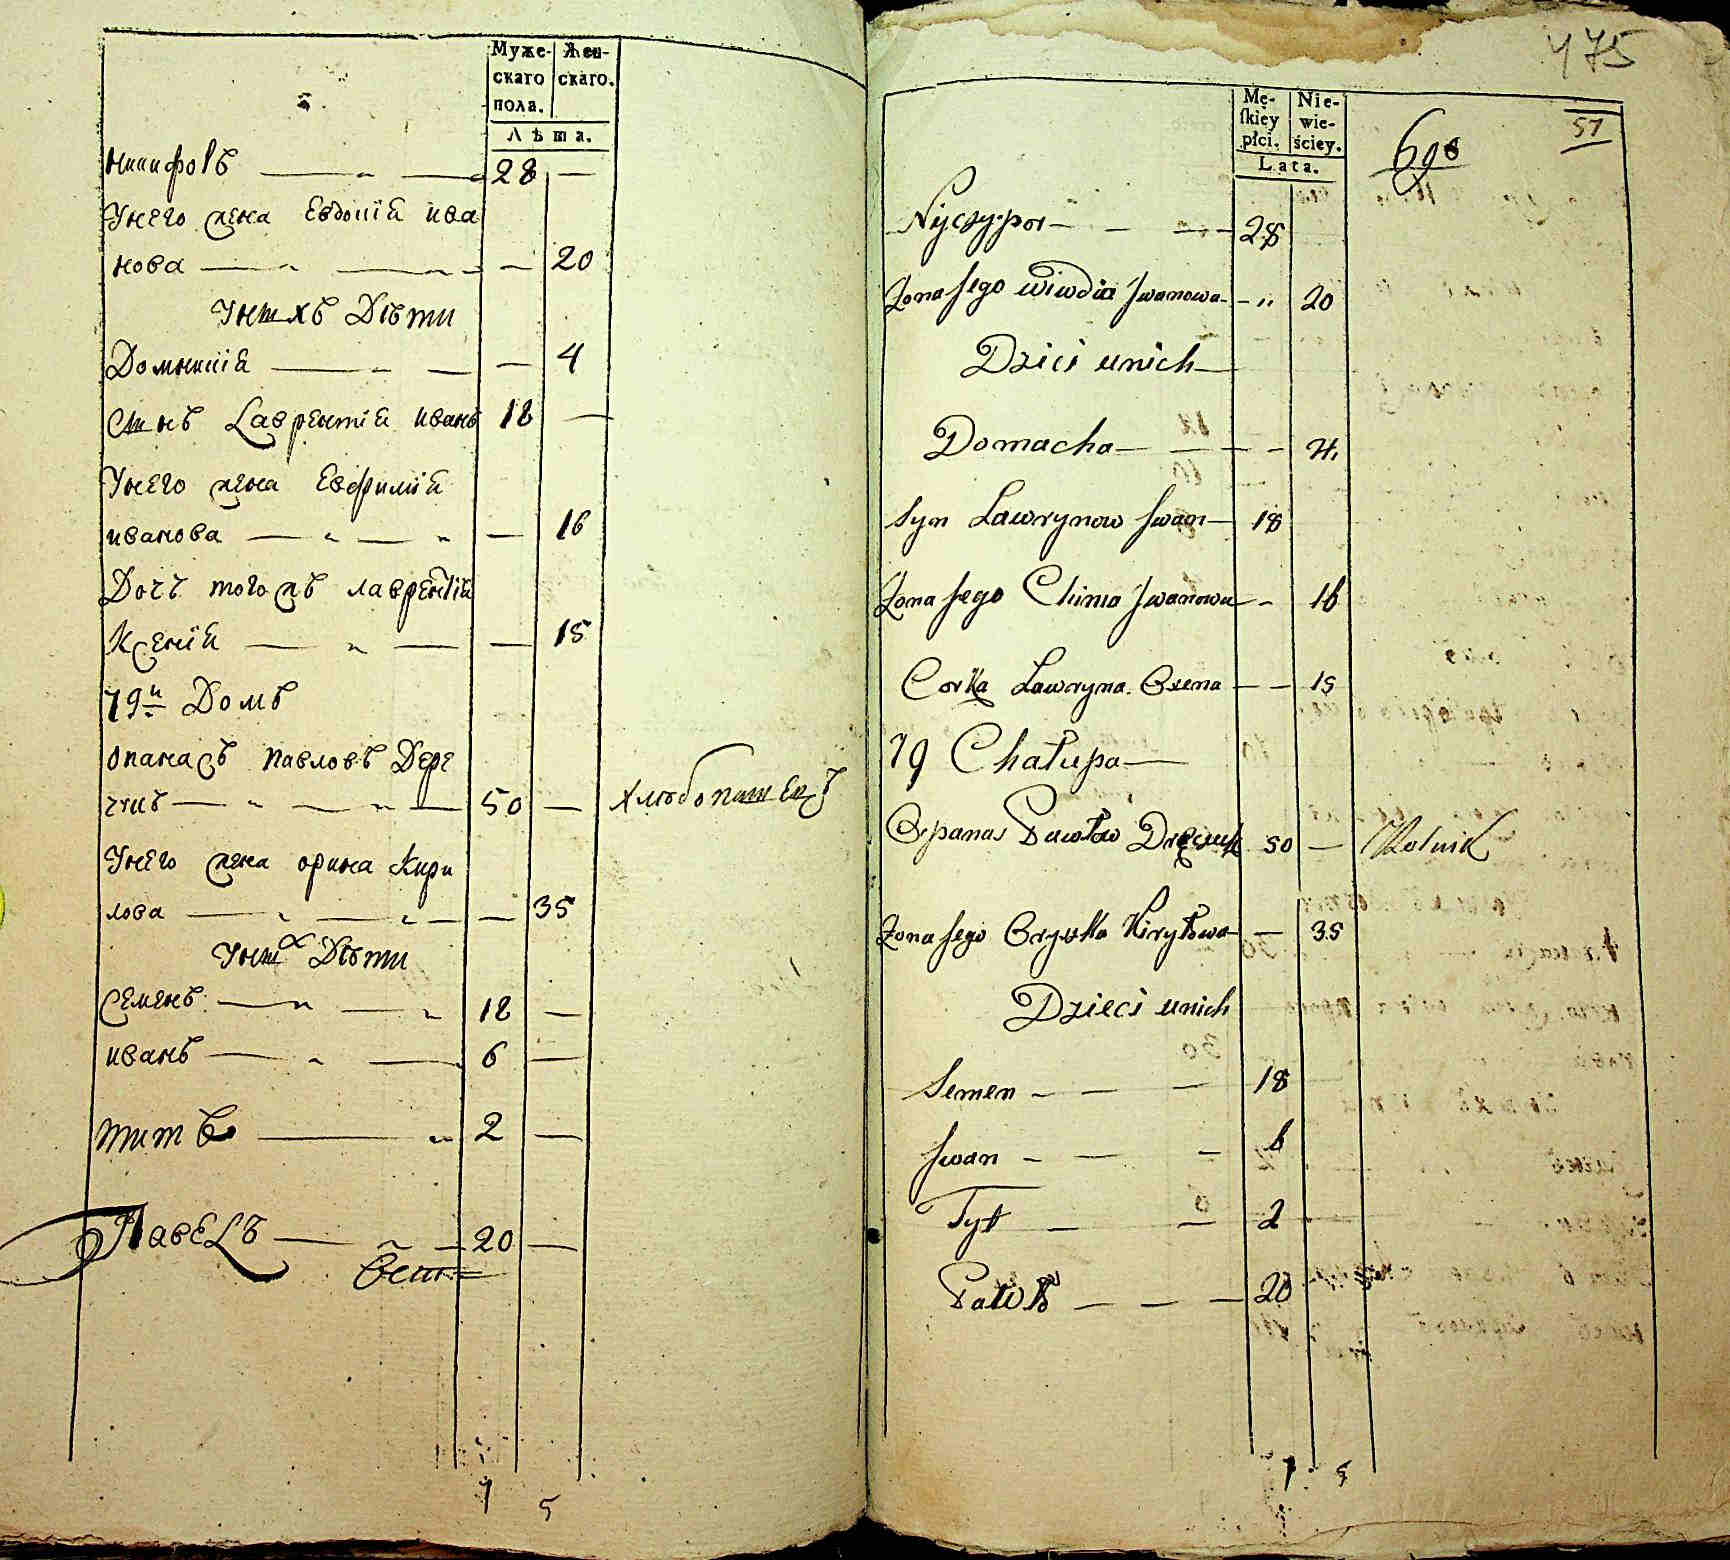 Муже-
скаго
пола.
Жен-
скаго.
Лѣта.
Никифоръ — „ — 28 —
Унего жена Евдокїя ива
нова — „ — „ — 20
Унихъ Дѣти
Домникїя — „ — — 4
Сынъ Лаврентїй иванъ 18 —
Унего жена Евфимїя
иванова — „ — „ — 16
Дочь тогожъ лаврентїя
Ксенїя — „ — — 15
79й Домъ
опанасъ Павловъ Дере
чикъ — „ — „ — 50 — хлѣбопашецъ
Унего жена орина Кири
лова — „ — „ — — 35
Уних Дѣти
Семенъ — „ — „ 18 —
иванъ — „ — 6 —
титъ — „ 2 —
Павелъ — „ — 20 —
7 5
475
Mę-
skiey
płci.
Nie-
wie-
ściey.
Lata.
698
51
Nyczypor — — — 28
Zona Jego Wiwdia Jwanowa — „ 20
Dzieci unich —
Domacha — — — — 4
Syn Lawrynow Jwan — 18
Zona Jego Chima Jwanowa — — 16
Corka Lawryna Oxena — — 15
79 Chałupa —
Opanas Pawłow Dreczyk 50 — Rolnik
Zona Jego Oryszka Kiryłowa — 35
Dzieci unich
Semen — — — 18
Jwan — — — 6
Tyt — — 2
Pawło — — — 20
7 5